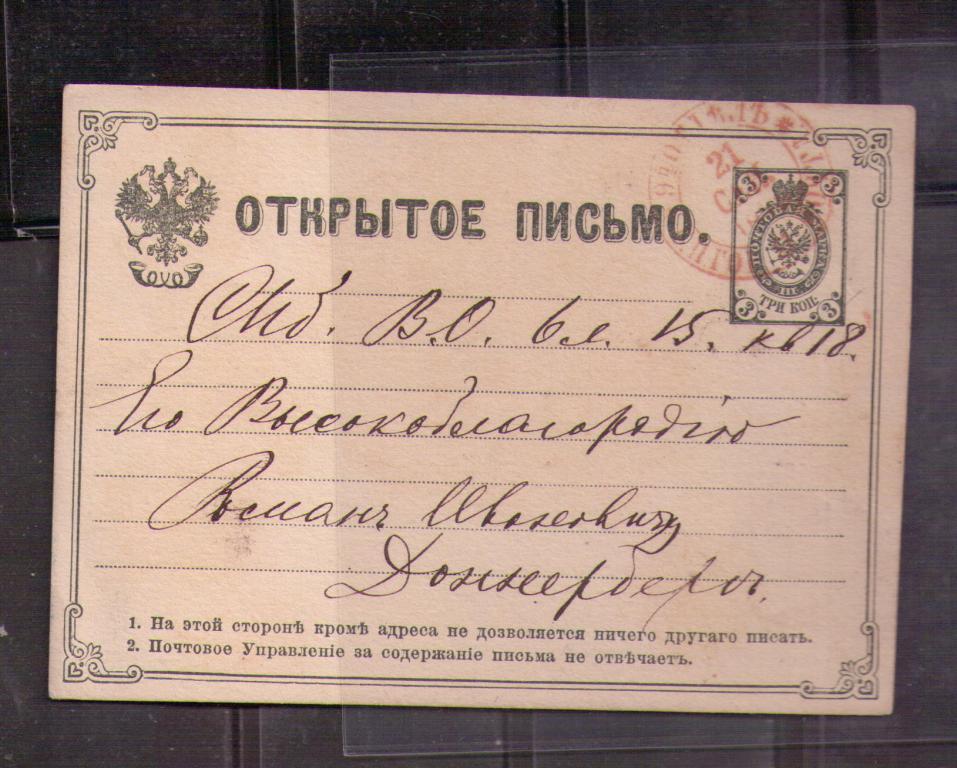 21
ОТКРЫТОЕ ПИСЬМО.
3 3
ТРИ КОП:
3 3
Спб. В.О. 6 л. 15. кв 18.
Его Высокоблагородію
Роману Ивановичу
Доннербергъ.
1. На этой сторонѣ кромѣ адреса не дозволяется ничего другаго писать.
2. Почтовое Управленіе за содержаніе письма не отвѣчаетъ.